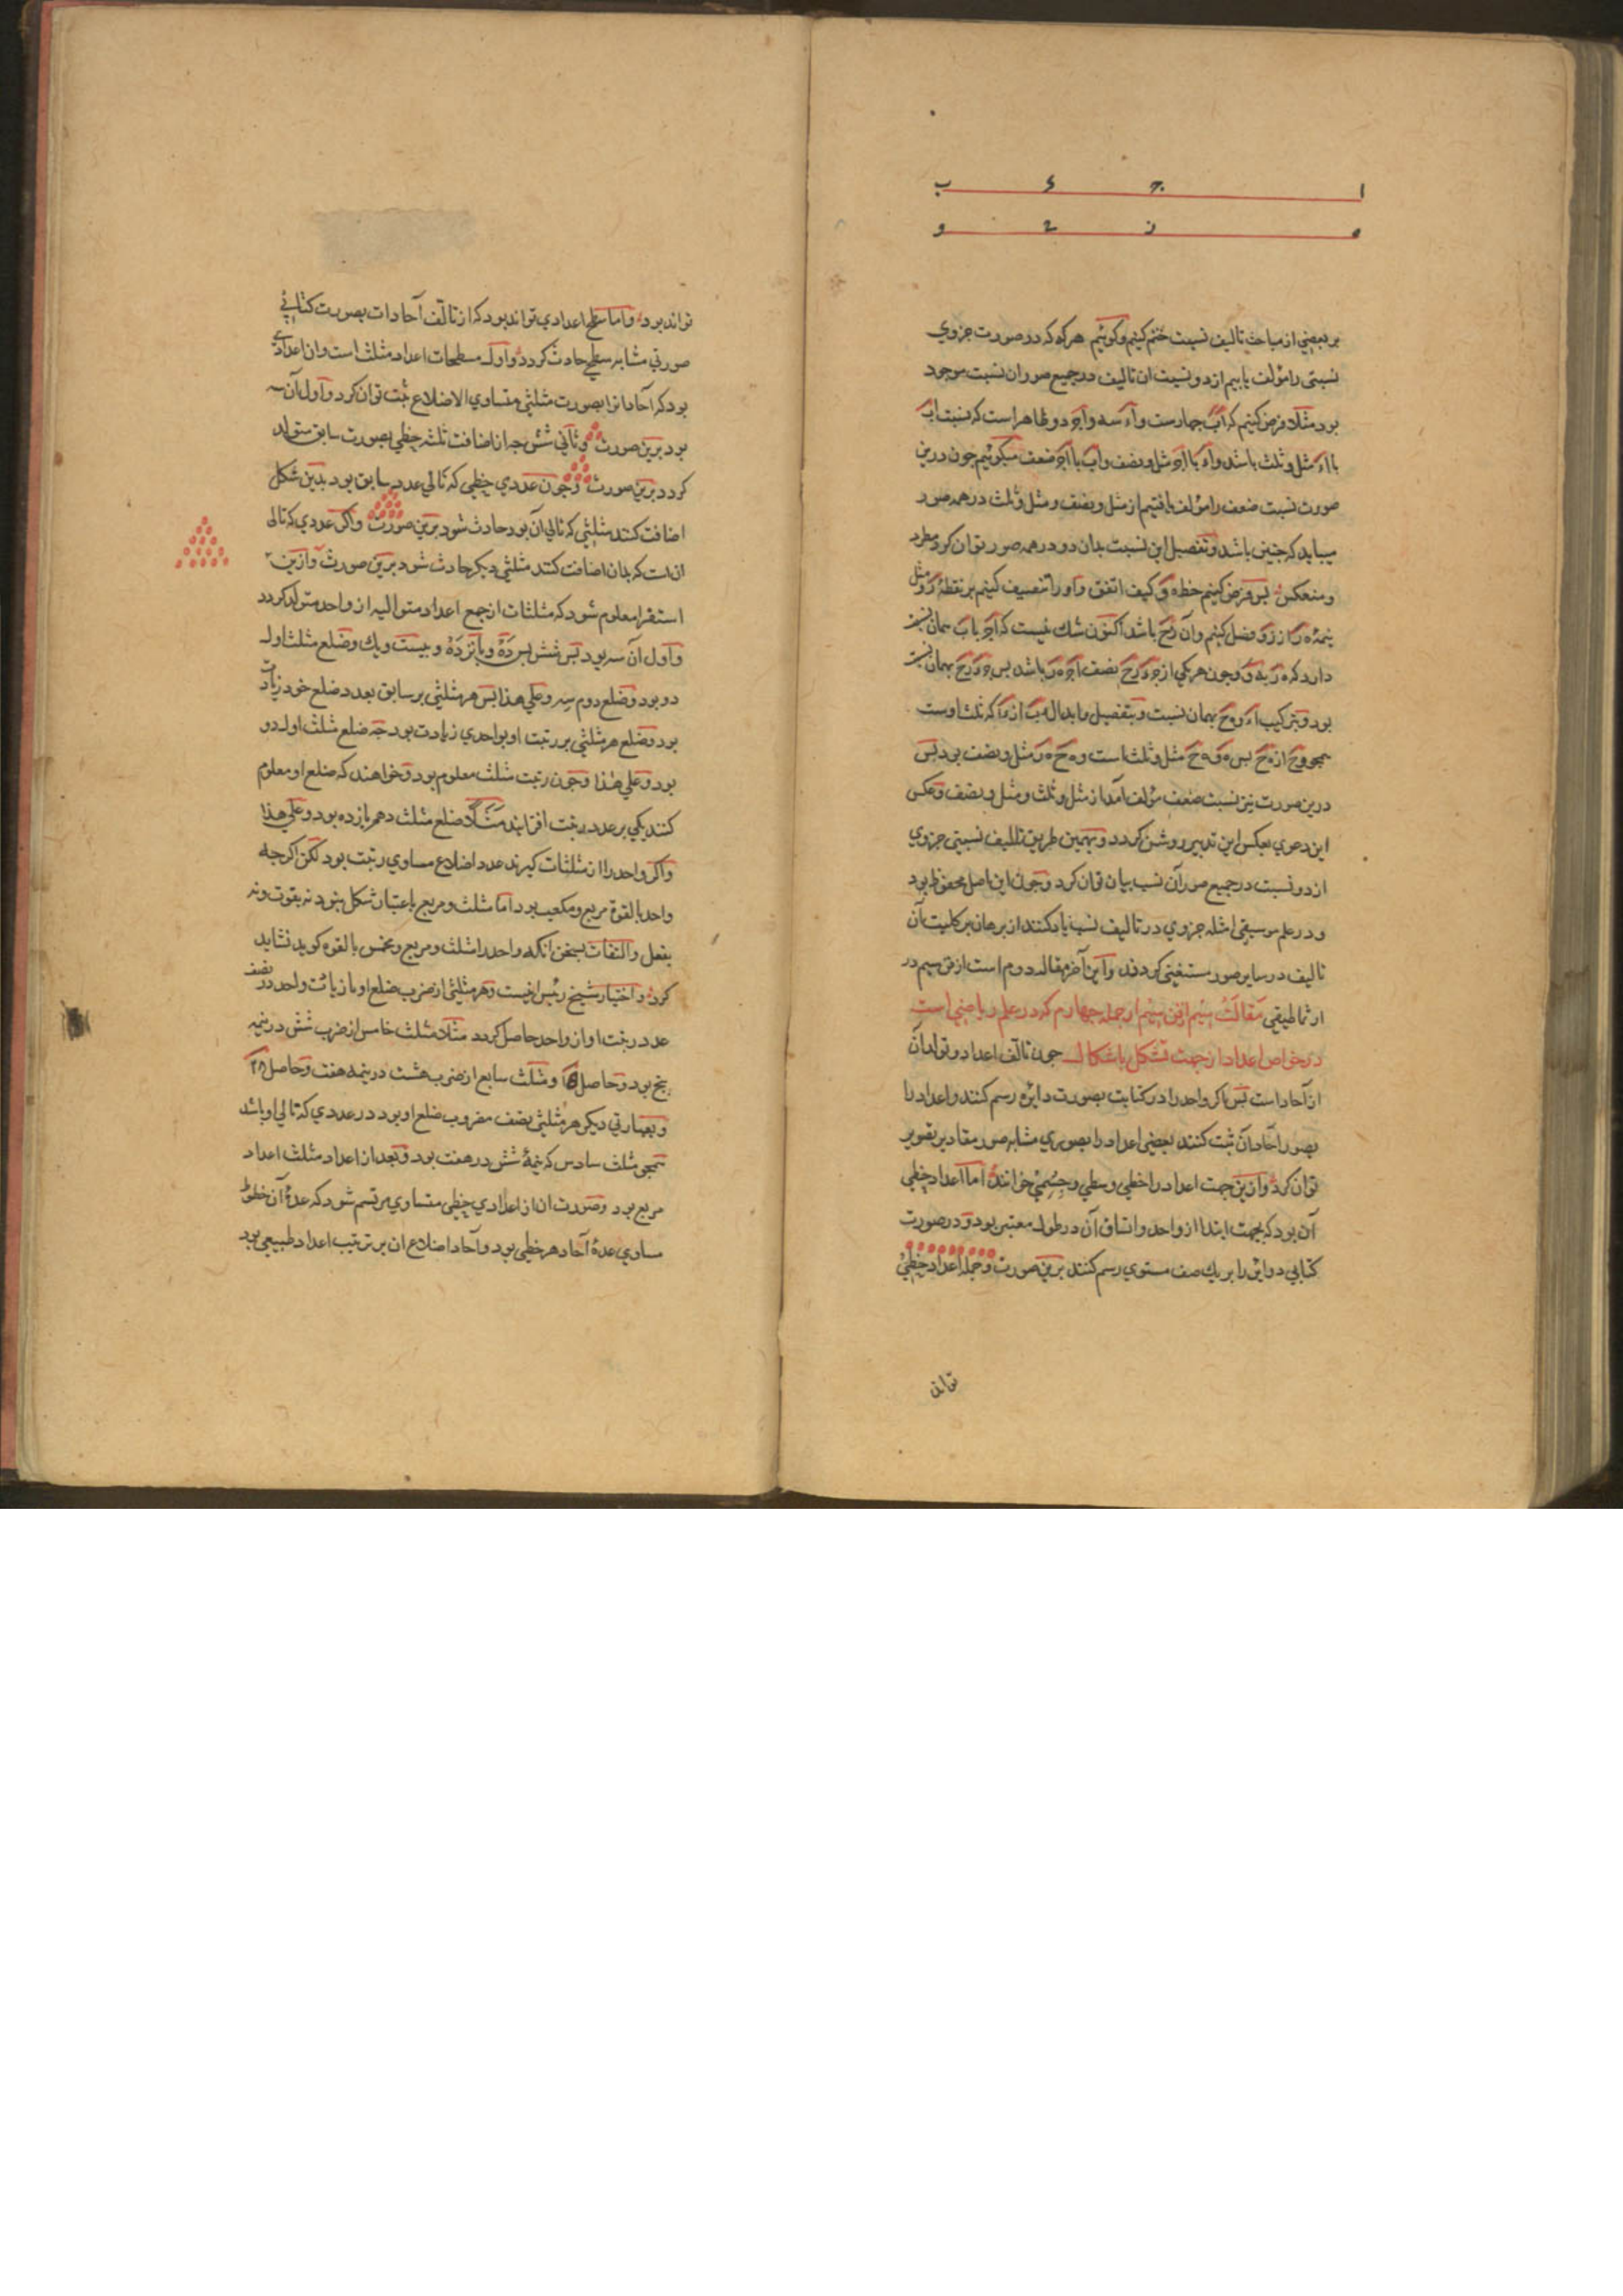 ا ج ء ب
ه ز ح و
بر بعضی از مباحث تالیف نسبت ختم کنیم وکوئیم هرکه که در صورت جزوی
نسبتی را مؤلف یابیم از دو نسبت ان تالیف در جمیع صور ان نسبت موجود
بود مثلا فرض کنیم که اب چهارست واء سه واج دو ظاهر است که نسبت اب
با اء مثل وثلث باشد واء با اج مثل ونصف واب با اج ضعف میکوئیم چون درین
صورت نسبت ضعف را مؤلف یافتیم از مثل ونصف ومثل وثلث در همه صور
میباید که چنین باشد وتفصیل این نسبت بدان دو در همه صور توان کرد مطرد
ومنعکس پس فرض کنیم خط ه و کیف اتفق واو را تنصیف کنیم بر نقطه ز ومثل
نیمه ه ز از ز و فصل کنیم وآن زح باشد اکنون شك نیست که اج با ب همان نسبت
دارد که ه ز به و وچون هریکی از جء زح نصف اج ه ز باشد پس جء زح بهمان نسبت
بود وبترکیب اء وه ح بهمان نسبت وبتفصیل وابدال ءب از ءا که ثلث اوست
همچو وح از ه ح پس ه و ه ح مثل وثلث است وه ح ه ز مثل ونصف بود پس
درین صورت نیز نسبت ضعف مؤلف آمد از مثل وثلث ومثل ونصف وعکس
این دعوی بعکس این تدبیر روشن کردد وبهمین طریق تالیف نسبتی جزوی
از دو نسبت در جمیع صور آن نسب بیان توان کرد وچون این اصل محفوظ بود
ودر علم موسیقی امثله جزوی در تالیف نسب یاد کنند از برهان بر کلیت آن
تالیف در سایر صور مستغنی کردند واین آخر مقاله دوم است از فن سیم در
ارثماطیقی مقالت سیم از فن سیم از جمله چهارم که در علم ریاضی است
در خواص اعداد از جهت تشکل باشکال چون تالف اعداد وتولد آن
از آحاد است پس اکر واحد را در کتابت بصورت دایره رسم کنند واعداد را
بصور آحاد آن ثبت کنند بعضی اعداد را بصوری مشابه صور مقادیر تصویر
توان کرد وازین جهت اعداد را خطی وسطحی وجسمی خوانند اما اعداد خطی
آن بود که بجهت ابتدا از واحد واتساق آن در طول معتبر بود ودر صورت
کتابی دوایر را بر یك صف مستوی رسم کنند برین صورت وجمله اعداد خطی
تواند
تواند بود واما سطحی اعدادی تواند بود که از تالف آحاد ات بصورت کتابی
صورتی مشابه سطحی حادث کردد واول مسطحات اعداد مثلث است وان اعدادی
بود که آحاد انرا بصورت مثلثی متساوی الاضلاع ثبت توان کرد واول آن سه
بود برین صورت وثانی شش چه از اضافت ثلثه خطی بصورت سابق متولد
کردد برین صورت وچون عددی خطی که تالی عدد سابق بود بدین شکل
اضافت کنند مثلثی که تالی آن بود حادث شود برین صورت واکر عددی که تالی
ان است که بدان اضافت کنند مثلثی دیکر حادث شود برین صورت وازین
استقرا معلوم شود که مثلثات از جمع اعداد متوالیه از واحد متولد کردد
واول آن سه بود پس شش پس ده وپانزده وبیست ویك وضلع مثلث اول
دو بود وضلع دوم سه وعلی هذا پس هر مثلثی بر سابق بعدد ضلع خود زیادت
بود وضلع هر مثلثی بر رتبت او بواحدی زیادت بود چه ضلع مثلث اول دو
بود وعلی هذا وچون رتبت مثلث معلوم بود وخواهند که ضلع او معلوم
کنند یکی بر عدد رتبت افزایند مثلا ضلع مثلث دهم یازده بود وعلی هذا
واکر واحد را از مثلثات کیرند عدد اضلاع مساوی رتبت بود لکن اکرچه
واحد بالقوة مربع ومکعب بود اما مثلث ومربع باعتبار شکل نبود نه بقوت ونه
بفعل والتفات بسخن انکه واحد را مثلث ومربع ومخمس بالقوه کوید نشاید
کرد واختیار شیخ رئیس اینست وهر مثلثی از ضرب ضلع او با زیادت واحد در نصف
عدد رتبت او از واحد حاصل کردد مثلا مثلث خامس از ضرب شش در نیمه
پنج بود وحاصل ۱۵ ومثلث سابع از ضرب هشت در نیمه هفت وحاصل ۲۸
وبعبارتی دیکر هر مثلثی نصف مضروب ضلع او بود در عددی که تالی او باشد
همچو مثلث سادس که نیمهٔ شش در هفت بود وبعد از اعداد مثلث اعداد
مربع بود وصورت ان از اعدادی خطی متساوی مرتسم شود که عدهٔ آن خطوط
مساوی عدهٔ آحاد هر خطی بود وآحاد اضلاع ان بر ترتیب اعداد طبیعی بود